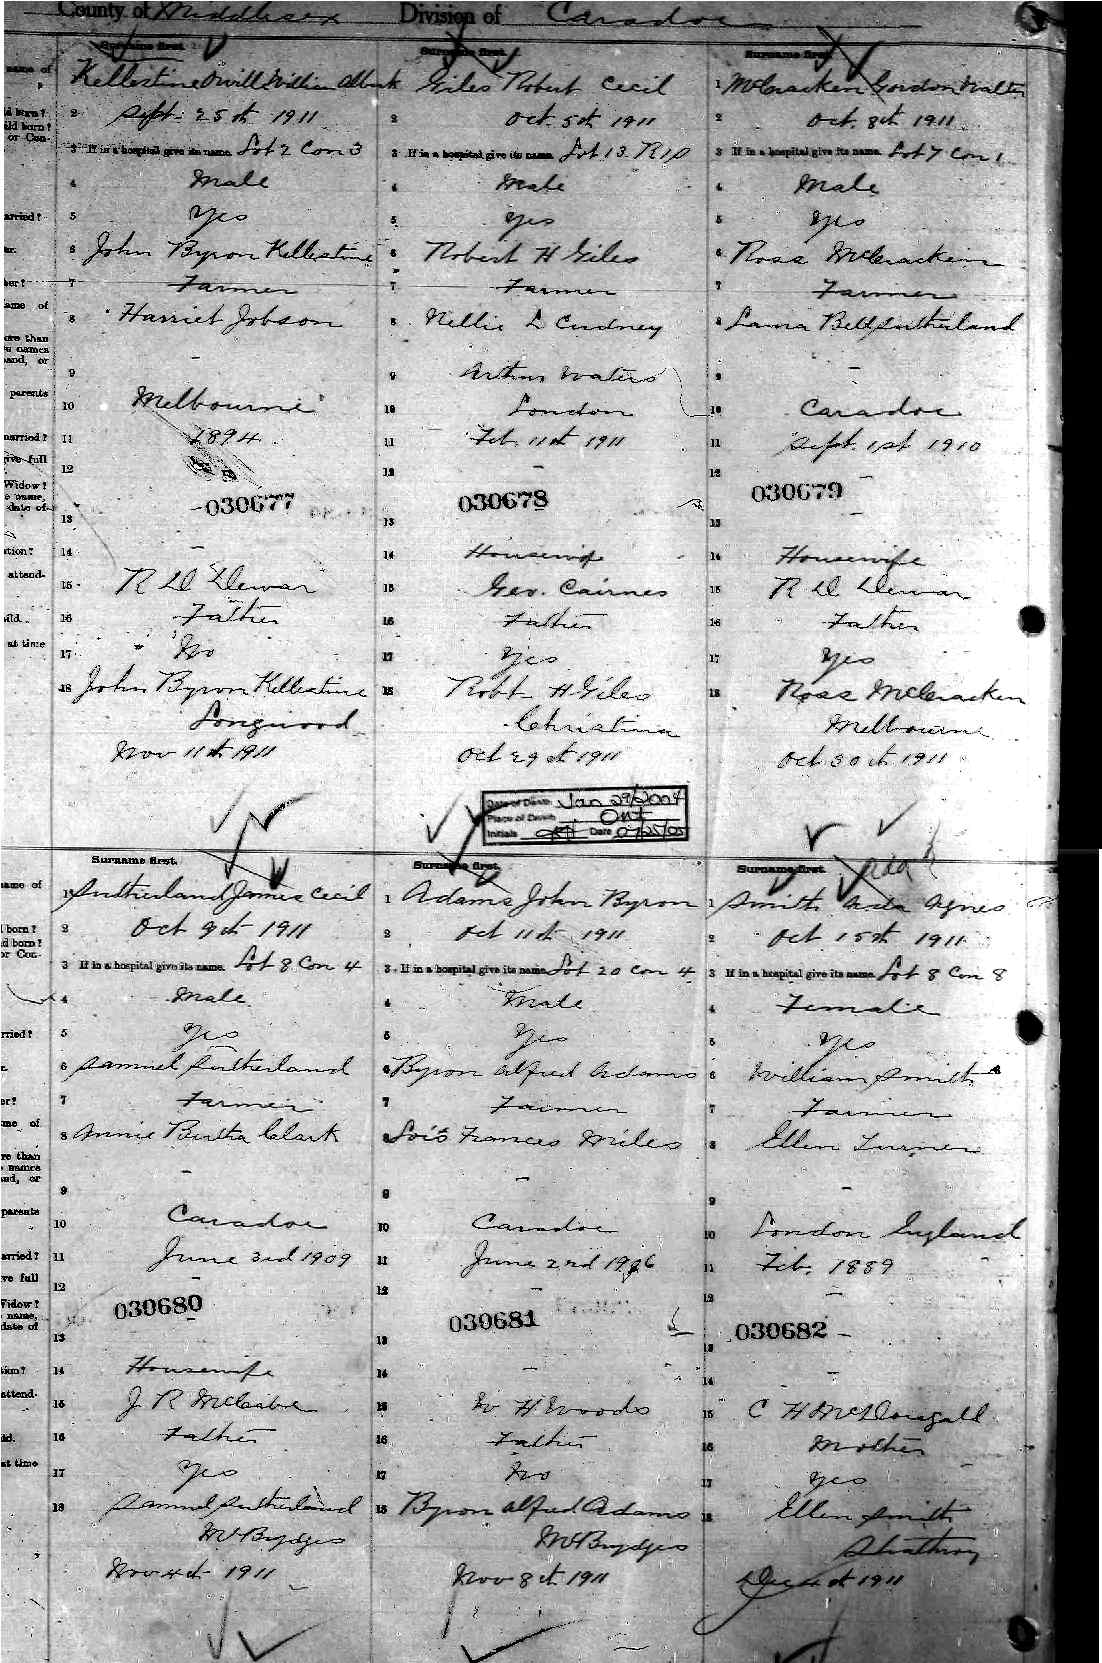 County of Middlesex Division of Caradoc
Surname first.
Kellestine Orvill William Albert
2 Sept. 25th 1911
3 If in a hospital give its name. Lot 2 Con 3
4 Male
5 Yes
6 John Byron Kellestine
7 Farmer
8 Harriet Jobson
9 -
10 Melbourne
11 1894
12
030677
13
14 -
15 R D Dewar
16 Father
17 No
18 John Byron Kellestine
Longwood
Nov 11th 1911
Surname first.
Giles Robert Cecil
2 Oct. 5th 1911
3 If in a hospital give its name. Lot 13 R 1 D
4 Male
5 Yes
6 Robert H Giles
7 Farmer
8 Nellie L Cudney
9 Arthur Waters
10 London
11 Feb. 11th 1911
12 -
030678
13
14 Housewife
15 Geo. Cairnes
16 Father
17 Yes
18 Robt H Giles
Christina
Oct 29th 1911
Date of Death Jan 29/2004
Place of Death Ont
Initials Date 07/25/05
Surname first.
1 McCracken Gordon Walter
2 Oct. 8th 1911
3 If in a hospital give its name. Lot 7 Con 1
4 Male
5 Yes
6 Ross McCracken
7 Farmer
8 Laura Bell Sutherland
9 -
10 Caradoc
11 Sept. 1st 1910
12 -
030679
13
14 Housewife
15 R D Dewar
16 Father
17 Yes
18 Ross McCracken
Melbourne
Oct 30th 1911
Surname first.
1 Sutherland James Cecil
2 Oct 9th 1911
3 If in a hospital give its name. Lot 8 Con 4
4 Male
5 Yes
6 Samuel Sutherland
7 Farmer
8 Annie Bertha Clark
9 -
10 Caradoc
11 June 3rd 1909
12 -
030680
13
14 Housewife
15 J R McCabe
16 Father
17 Yes
18 Samuel Sutherland
Mt Brydges
Nov 4th 1911
Surname first.
1 Adams John Byron
2 Oct 11th 1911
3 If in a hospital give its name. Lot 20 Con 4
4 Male
5 Yes
6 Byron Alfred Adams
7 Farmer
8 Lois Frances Miles
9 -
10 Caradoc
11 June 2nd 1906
12 -
030681
13
14 -
15 W H Woods
16 Father
17 No
18 Byron Alfred Adams
Mt Brydges
Nov 8th 1911
Surname first. Ada
1 Smith Ada Agnes
2 Oct 15th 1911
3 If in a hospital give its name. Lot 8 Con 8
4 Female
5 Yes
6 William Smith
7 Farmer
8 Ellen Turner
9 -
10 London England
11 Feb. 1889
12 -
030682 -
13
14 -
15 C H McDougall
16 Mother
17 Yes
18 Ellen Smith
Strathroy
Dec 4th 1911